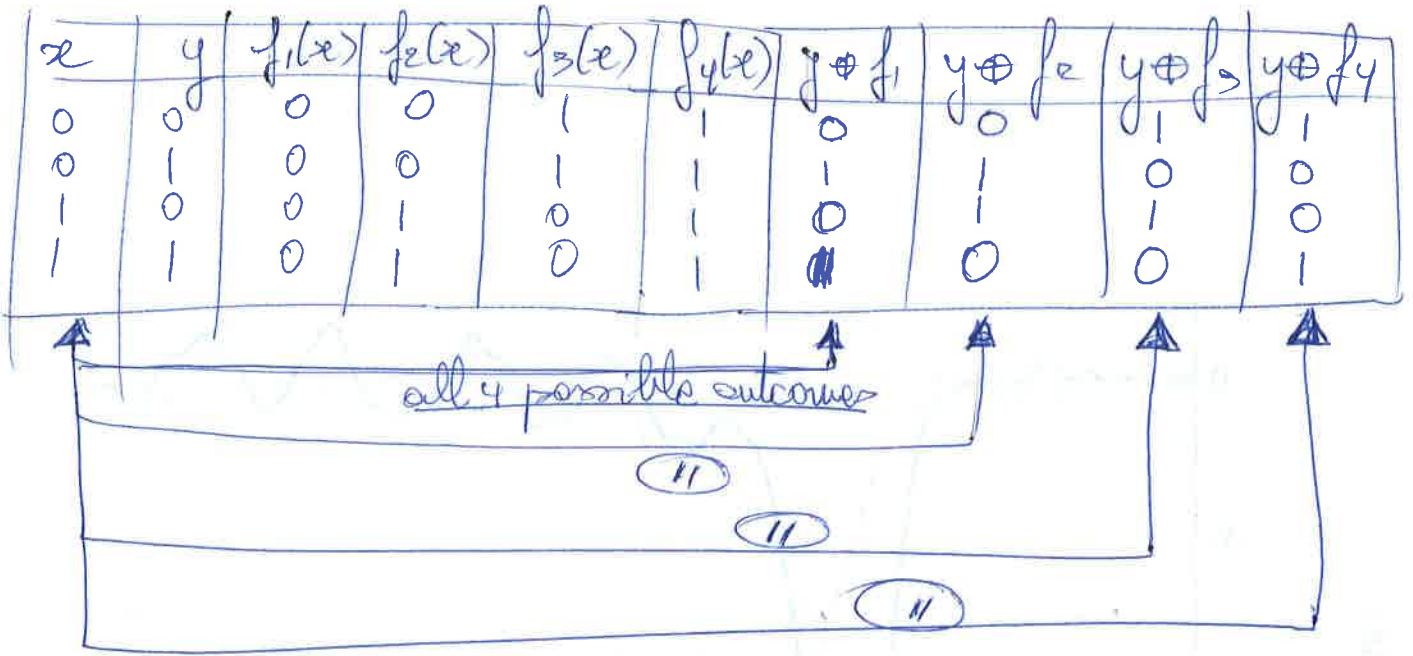 x y f₁(x) f₂(x) f₃(x) f₄(x) y⊕f₁ y⊕f₂ y⊕f₃ y⊕f₄
0 0 0 0 1 1 0 0 1 1
0 1 0 0 1 1 1 1 0 0
1 0 0 1 0 1 0 1 1 0
1 1 0 1 0 1 1 0 0 1
all 4 possible outcomes
"
"
"